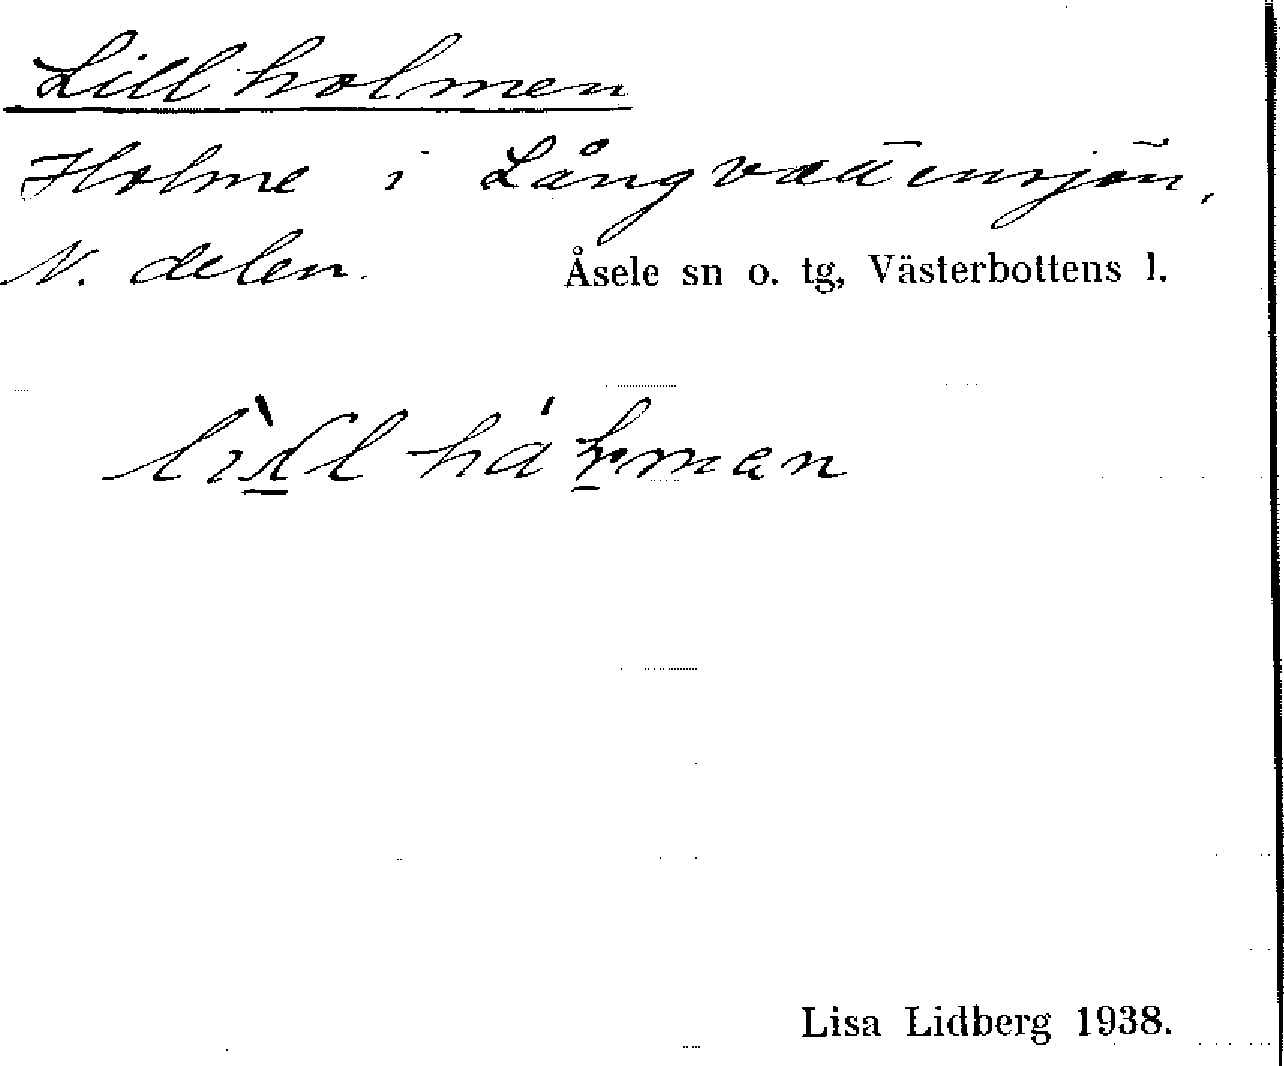 Lillholmen
Holme i Långvattensjön,
N. delen.
Åsele sn o. tg, Västerbottens l.
Lisa Lidberg 1938.